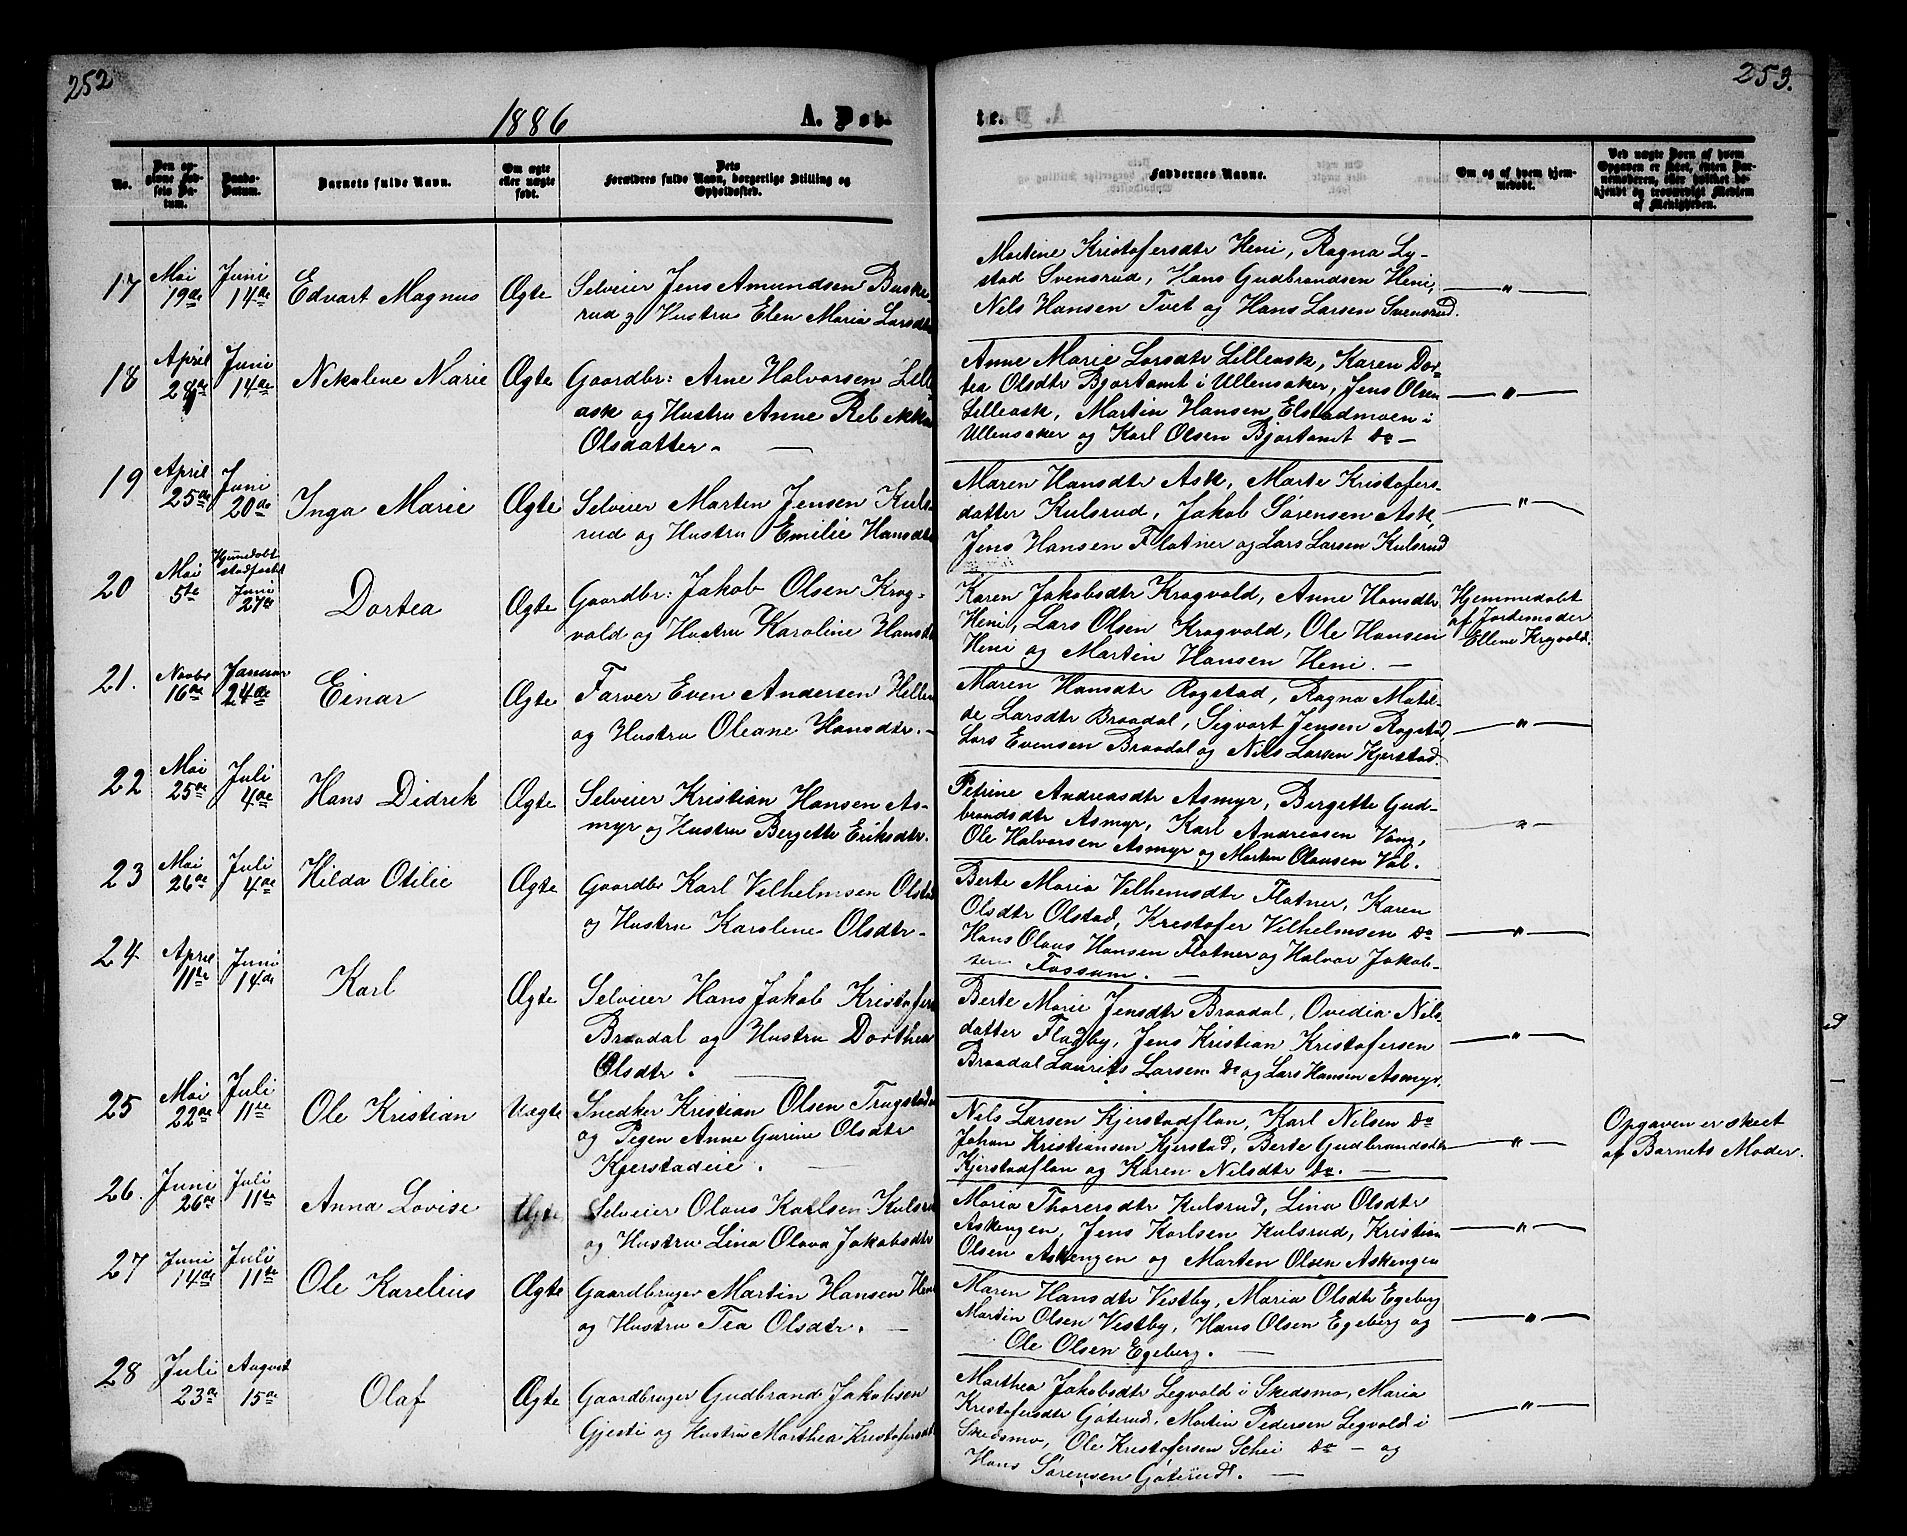 252
253.
1886
A. Døb-
te.
No.
Den op-
givne Fød-
sels Da-
tum.
Daabs-
Datum.
Barnets fulde Navn.
Om ægte
eller uægte
født.
Dets
Forældres fulde Navn, borgerlige Stilling og
Opholdssted.
Faddernes Navne.
Om og af hvem hjem-
medøbt.
Ved uægte Børn af hvem
Opgaven er skeet, enten Bar-
nemoderen, eller hvilket be-
kjendt og troværdigt Medlem
af Menigheden.
17
Mai
19de
Juni
14de
Edvart Magnus
Ægte
Selveier Jens Amundsen Buske-
rud og Hustru Elen Maria Larsdtr
Martine Kristofersdtr Heni, Ragna Ly-
stad Svensrud, Hans Gudbrandsen Heni,
Nils Hansen Tvet og Hans Larsen Svensrud.
— " —
18
April
24de
Juni
14de
Nekolene Marie
Ægte
Gaardbr: Arne Halvorsen Lille
ask og Hustru Anne Rebekka
Olsdatter. —
Anne Marie Larsdtr Lilleask, Karen Dor-
tea Olsdtr Bjørtomt i Ullensaker, Jens Olsen
Lilleask, Martin Hansen Elstadmoen i
Ullensaker og Karl Olsen Bjørtomt do —
— " —
19
April
25de
Juni
20de
Inga Marie
Ægte
Selveier Martin Jensen Kuls-
rud og Hustru Emilie Hansdtr
Maren Hansdtr Ask, Marte Kristofers-
datter Kulsrud, Jakob Sørensen Ask,
Jens Hansen Flatner og Lars Larsen Kulsrud
— " —
20
Mai
5te
Hjemmedøbt
stadfæstet
Juni
27de
Dortea
Ægte
Gaardbr: Jakob Olsen Krog-
vold og Hustru Karoline Hansdtr
Karen Jakobsdtr Krogvold, Anne Hansdtr
Heni, Lars Olsen Krogvold, Ole Hansen
Heni og Martin Hansen Heni. —
Hjemmedøbt
af Jordemoder
Ellene Krogvold.
21.
Novbr
16de
Januar
24de
Einar
Ægte
Farver Even Andersen Hellen
og Hustru Oleane Hansdtr. —
Maren Hansdtr Rogstad, Ragna Matil-
de Larsdtr Braadal, Sigvart Jensen Rogstad
Lars Evensen Braadal og Nils Larsen Kjerstad
— " —
22
Mai
25de
Juli
4de
Hans Didrek
Ægte
Selveier Kristian Hansen As-
myr og Hustru Bergette Eriksdtr.
Petrine Andreasdtr Asmyr, Bergette Gud-
brandsdtr Asmyr, Karl Andreasen Vang,
Ole Halvorsen Asmyr og Martin Olausen Val.
— " —
23
Mai
26de
Juli
4de
Hilda Otilie
Ægte
Gaardbr Karl Velhelmsen Olstad
og Hustru Karolene Olsdtr —
Berte Maria Velhemsdtr Flatner, Karen
Olsdtr Olstad, Krestofer Vilhelmsen do
Hans Olaus Hansen Flatner og Halvor Jakob-
sen Fossum. —
— " —
24
April
11te
Juni
14de
Karl
Ægte
Selveier Hans Jakob Kristofers
Braadal og Hustru Dorthea
Olsdtr. —
Berte Marie Jensdtr Braadal, Ovedia Nils-
datter Fladby, Jens Kristian Kristofersen
Braadal Laurits Larsen do og Lars Hansen Asmyr.
— " —
25
Mai
22de
Juli
11te
Ole Kristian
Uægte
Snedker Kristian Olsen Trugstad
og Pigen Anne Gurine Olsdtr
Kjerstadeie. —
Nils Larsen Kjerstadflan, Karl Nilsen do
Johan Kristiansen Kjerstad, Berte Gudbrandsdtr
Kjerstadflan og Karen Nilsdtr do. —
— " —
Opgaven er skeet
af Barnets Moder.
26.
Juni
26de
Juli
11te
Anna Lovise
Ægte
Selveier Olaus Karlsen Kulsrud
og Hustru Lina Olava Jakobsdtr
Maria Thorersdtr Kulsrud, Lina Olsdtr
Askengen, Jens Karlsen Kulsrud, Kristian
Olsen Askengen og Marten Olsen Askengen
— " —
27
Juni
14de
Juli
11te
Ole Karelius
Ægte
Gaardbruger Martin Hansen Heni
og Hustru Tea Olsdtr. —
Maren Hansdtr Vestby, Maria Olsdtr Egeberg
Martin Olsen Vestby, Hans Olsen Egeberg og
Ole Olsen Egeberg. —
— " —
28
Juli
23de
August
15de
Olaf
Ægte
Gaardbruger Gudbrand Jakobsen
Gjesti og Hustru Marthea Kristofersdtr
Marthea Jakobsdtr Legvold i Skedsmo, Maria
Kristofersdtr Gøterud, Martin Pedersen Legvold i
Skedsmo, Ole Kristofersen Schei do — og
Hans Sørensen Gøterud. —
— " —